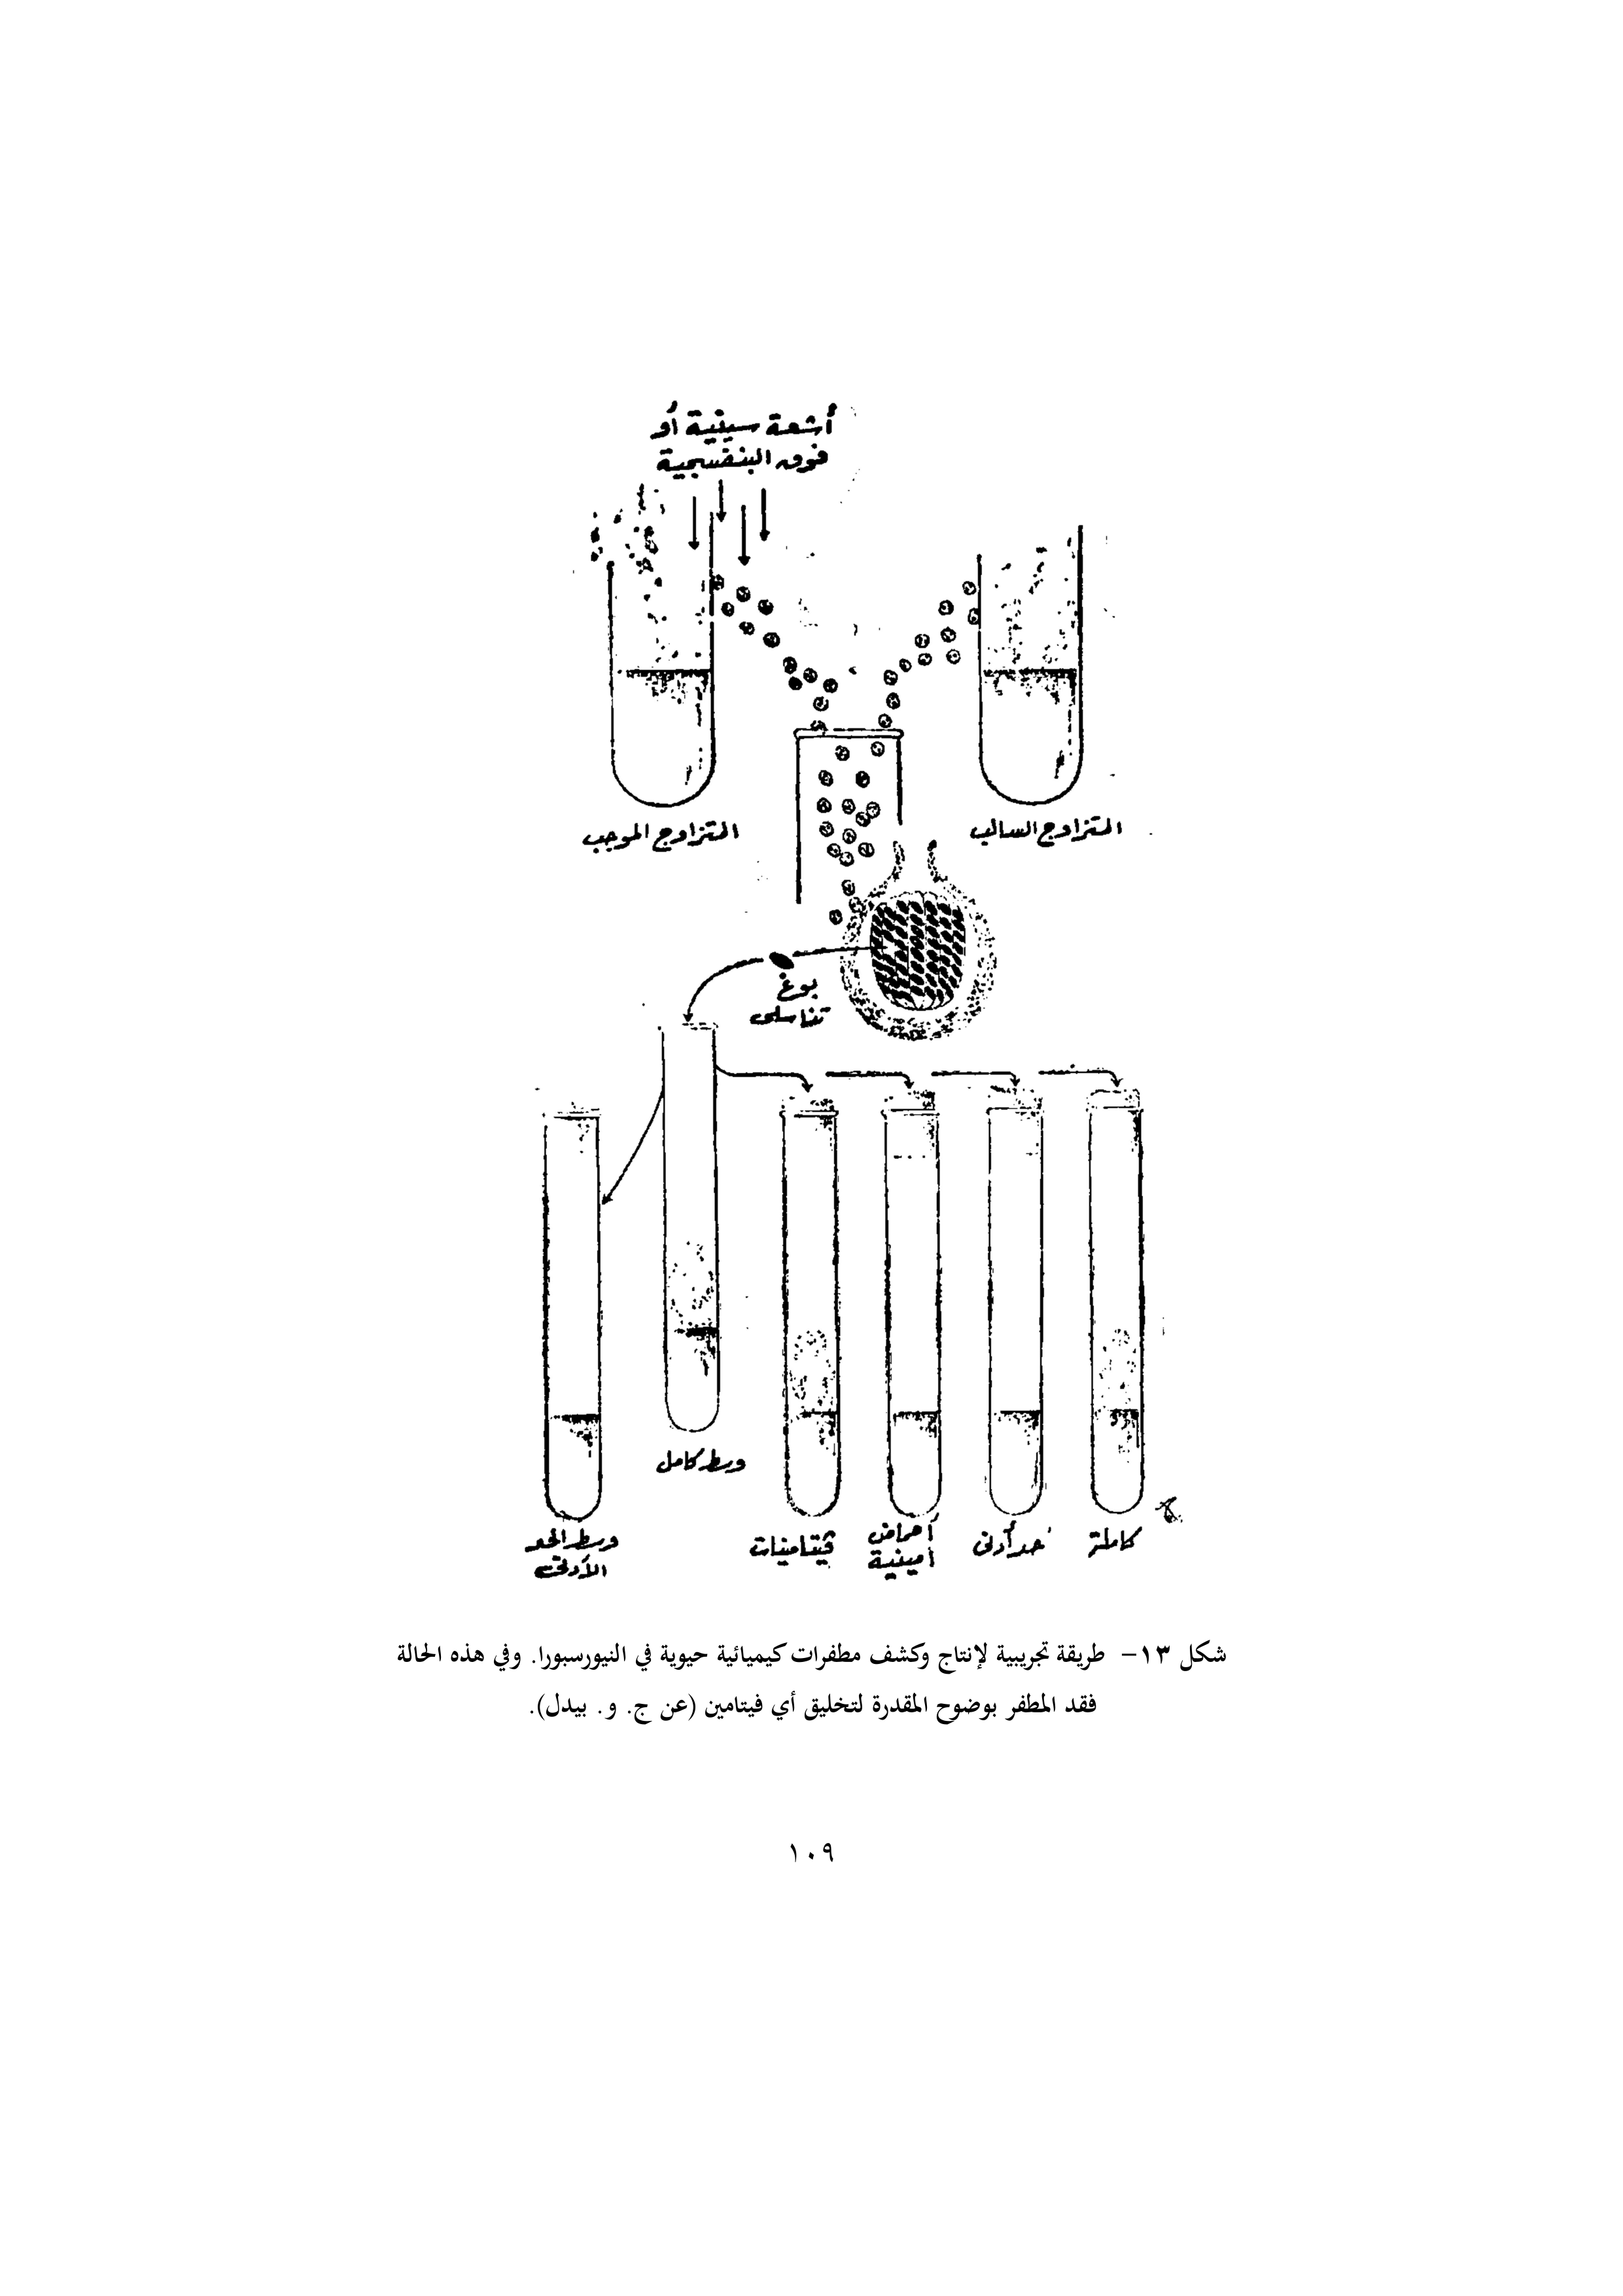 أشعة سينية أو
فوق البنفسجية
المتزاوج الموجب
المتزاوج السالب
بوغ
تناسلى
وسط كامل
وسط الحد
الأدنى
ڤيتامينات
أحماض
أمينية
حد أدنى
كاملة
شكل ١٣- طريقة تجريبية لإنتاج وكشف مطفرات كيميائية حيوية في النيورسبورا. وفي هذه الحالة
فقد المطفر بوضوح المقدرة لتخليق أي فيتامين (عن ج. و. بيدل).
١٠٩